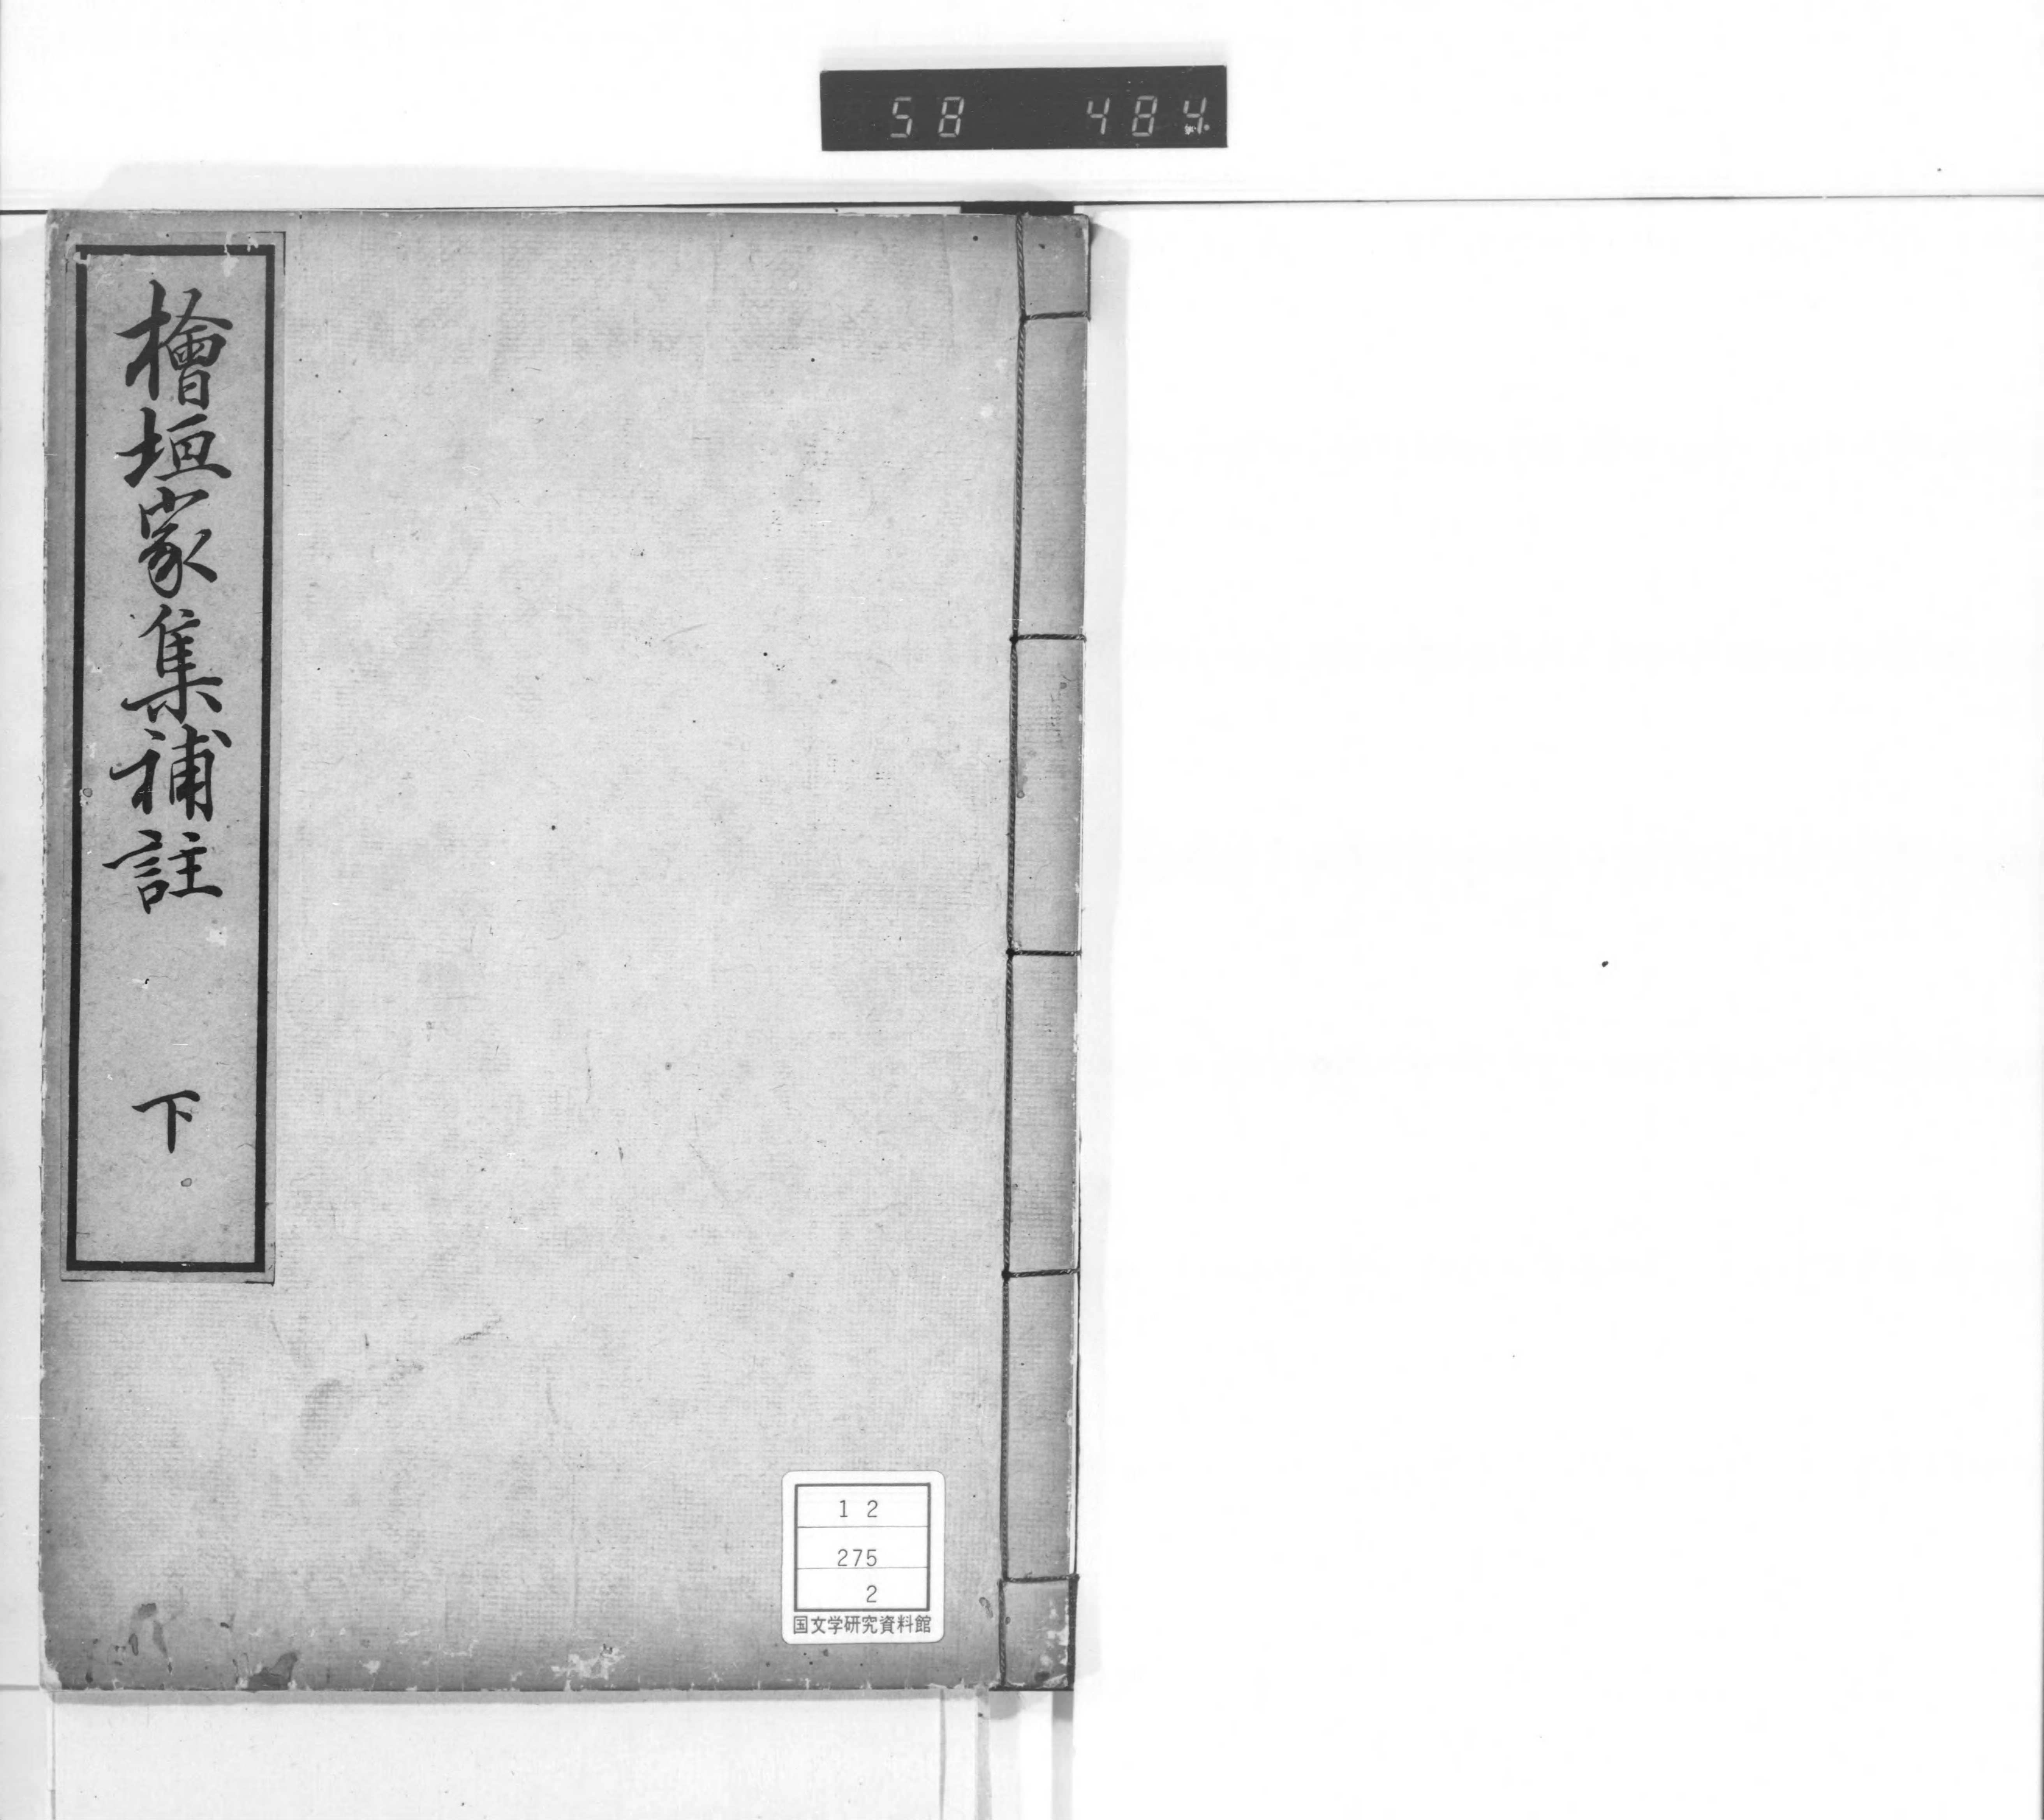 58 484
檜垣家集補註 下
12
275
2
国文学研究資料館